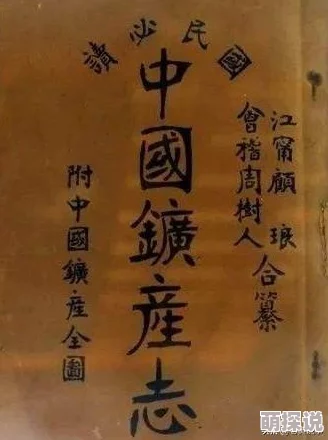 國民必讀
江甯顧琅
會稽周樹人
合纂
中國鑛産志
附中國鑛産全圖
萌探说